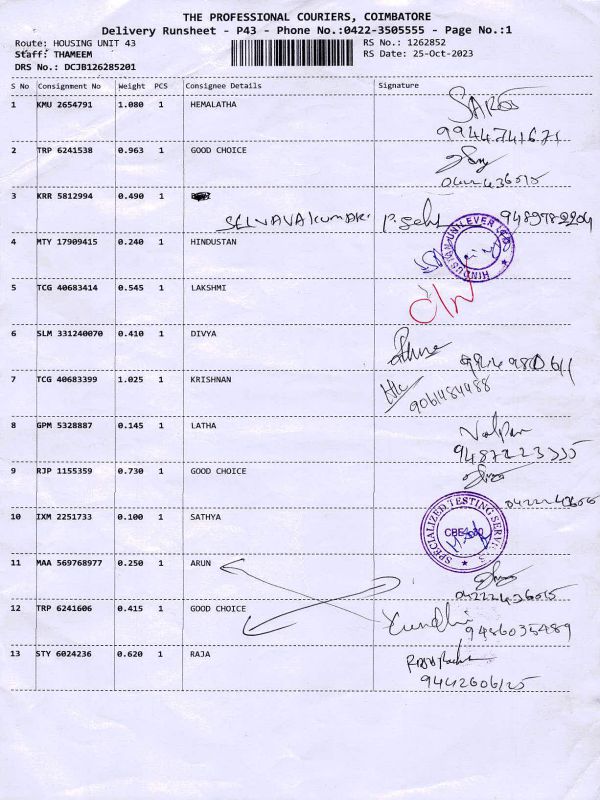 THE PROFESSIONAL COURIERS, COIMBATORE
Delivery Runsheet - P43 - Phone No.:0422-3505555 - Page No.:1
Route: HOUSING UNIT 43 RS No.: 1262852
Staff: THAMEEM RS Date: 25-Oct-2023
DRS No.: DCJB126285201
S No Consignment No Weight PCS Consignee Details Signature
1 KMU 2654791 1.080 1 HEMALATHA
9944741671
2 TRP 6241538 0.963 1 GOOD CHOICE
3 KRR 5812994 0.490 1
SELVAVAKUMAR
4 MTY 17909415 0.240 1 HINDUSTAN
HINDUSTAN UNILEVER
5 TCG 40683414 0.545 1 LAKSHMI
6 SLM 331240070 0.410 1 DIVYA
7 TCG 40683399 1.025 1 KRISHNAN
9061484488
8 GPM 5328887 0.145 1 LATHA
9 RJP 1155359 0.730 1 GOOD CHOICE
10 IXM 2251733 0.100 1 SATHYA
SPECIALIZED TESTING SERVICES
11 MAA 569768977 0.250 1 ARUN
12 TRP 6241606 0.415 1 GOOD CHOICE
9486035489
13 STY 6024236 0.620 1 RAJA
9442606125